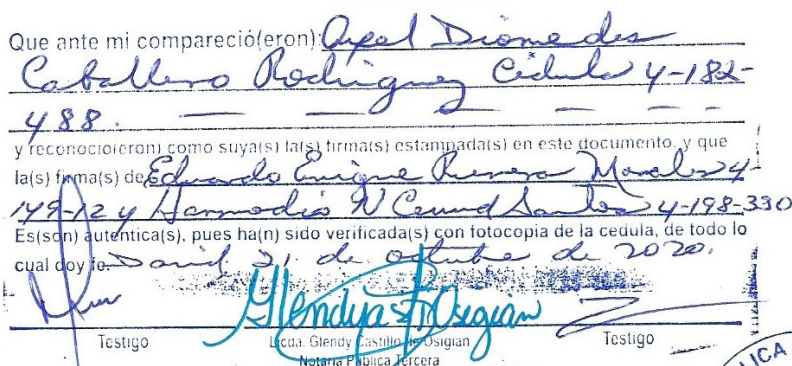 Que ante mi compareció(eron): Axel Diomedes
Caballero Rodriguez Cédula 4-182-
488. — — — — — —
y reconoció(eron) como suya(s) la(s) firma(s) estampada(s) en este documento, y que
la(s) firma(s) de Eduardo Enrique Morales 4-
149-12 y Harmodio N Cerrud Santos 4-198-330
Es(son) auténtica(s), pues ha(n) sido verificada(s) con fotocopia de la cedula, de todo lo
cual doy fe. David 21 de octubre de 2020.
Glendya de Osigian
Testigo Licda. Glendy Castillo de Osigian Testigo
Notaria Pública Tercera